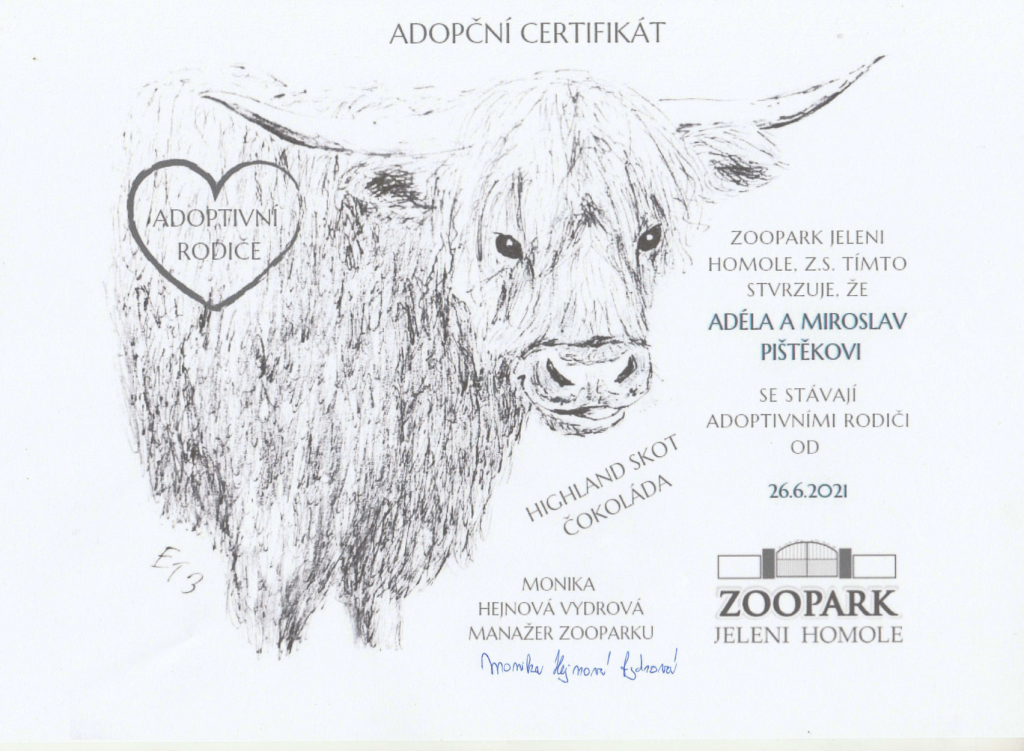 ADOPČNÍ CERTIFIKÁT
ADOPTIVNÍ
RODIČE
ZOOPARK JELENI
HOMOLE, Z.S. TÍMTO
STVRZUJE, ŽE
ADÉLA A MIROSLAV
PIŠTĚKOVI
SE STÁVAJÍ
ADOPTIVNÍMI RODIČI
OD
26.6.2021
HIGHLAND SKOT
ČOKOLÁDA
MONIKA
HEJNOVÁ VYDROVÁ
MANAŽER ZOOPARKU
Monika Hejnová Vydrová
ZOOPARK
JELENI HOMOLE